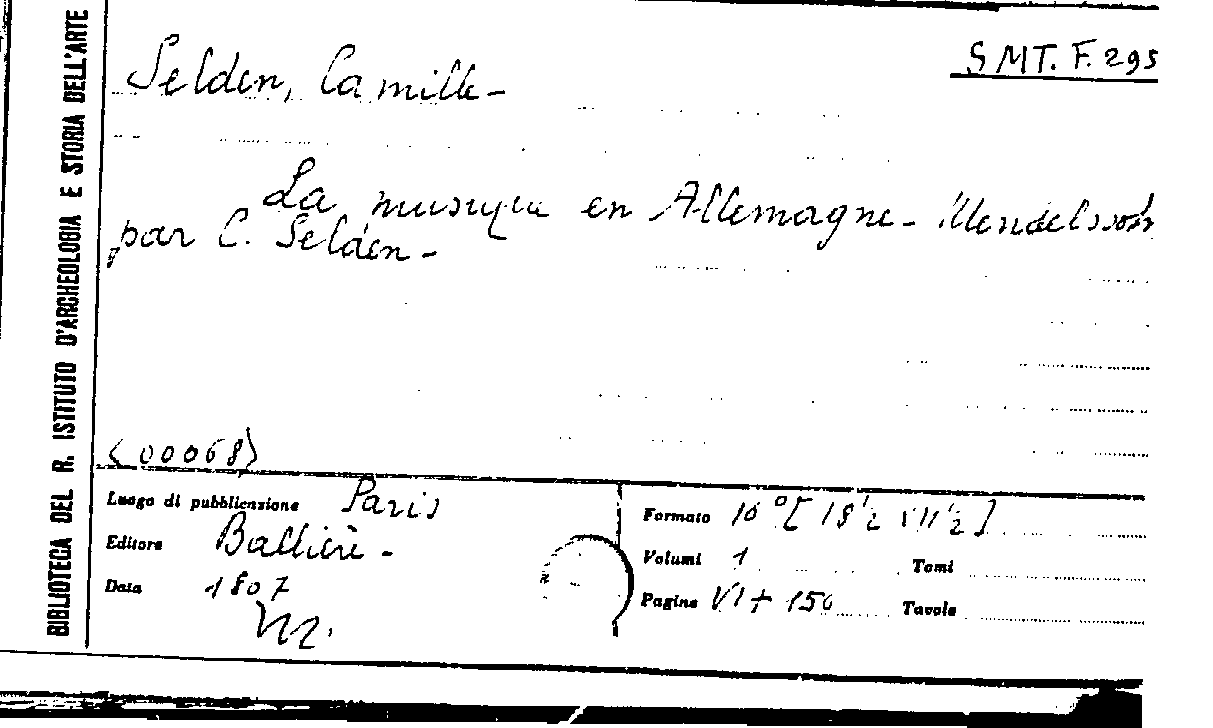 BIBLIOTECA DEL R. ISTITUTO D'ARCHEOLOGIA E STORIA DELL'ARTE
SMT. F. 295
Selden, Camille -
La musique en Allemagne - Mendelssoh
par C. Selden -
<00068>
Luogo di pubblicazione Paris
Editore Ballière -
Data 1807
Formato 16° [18 1/2 x 11 1/2]
Volumi 1 Tomi
Pagine VI + 150 Tavole